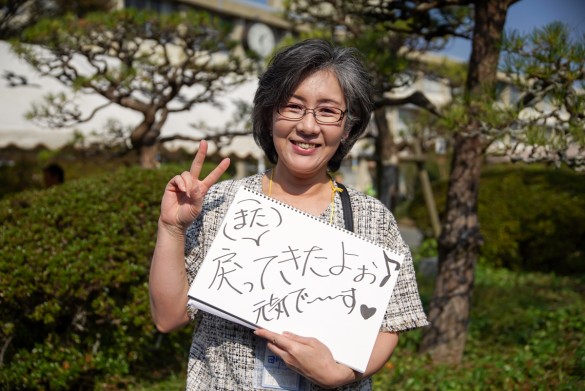 (また)
戻ってきたよぉ♪
元気で〜〜す♥